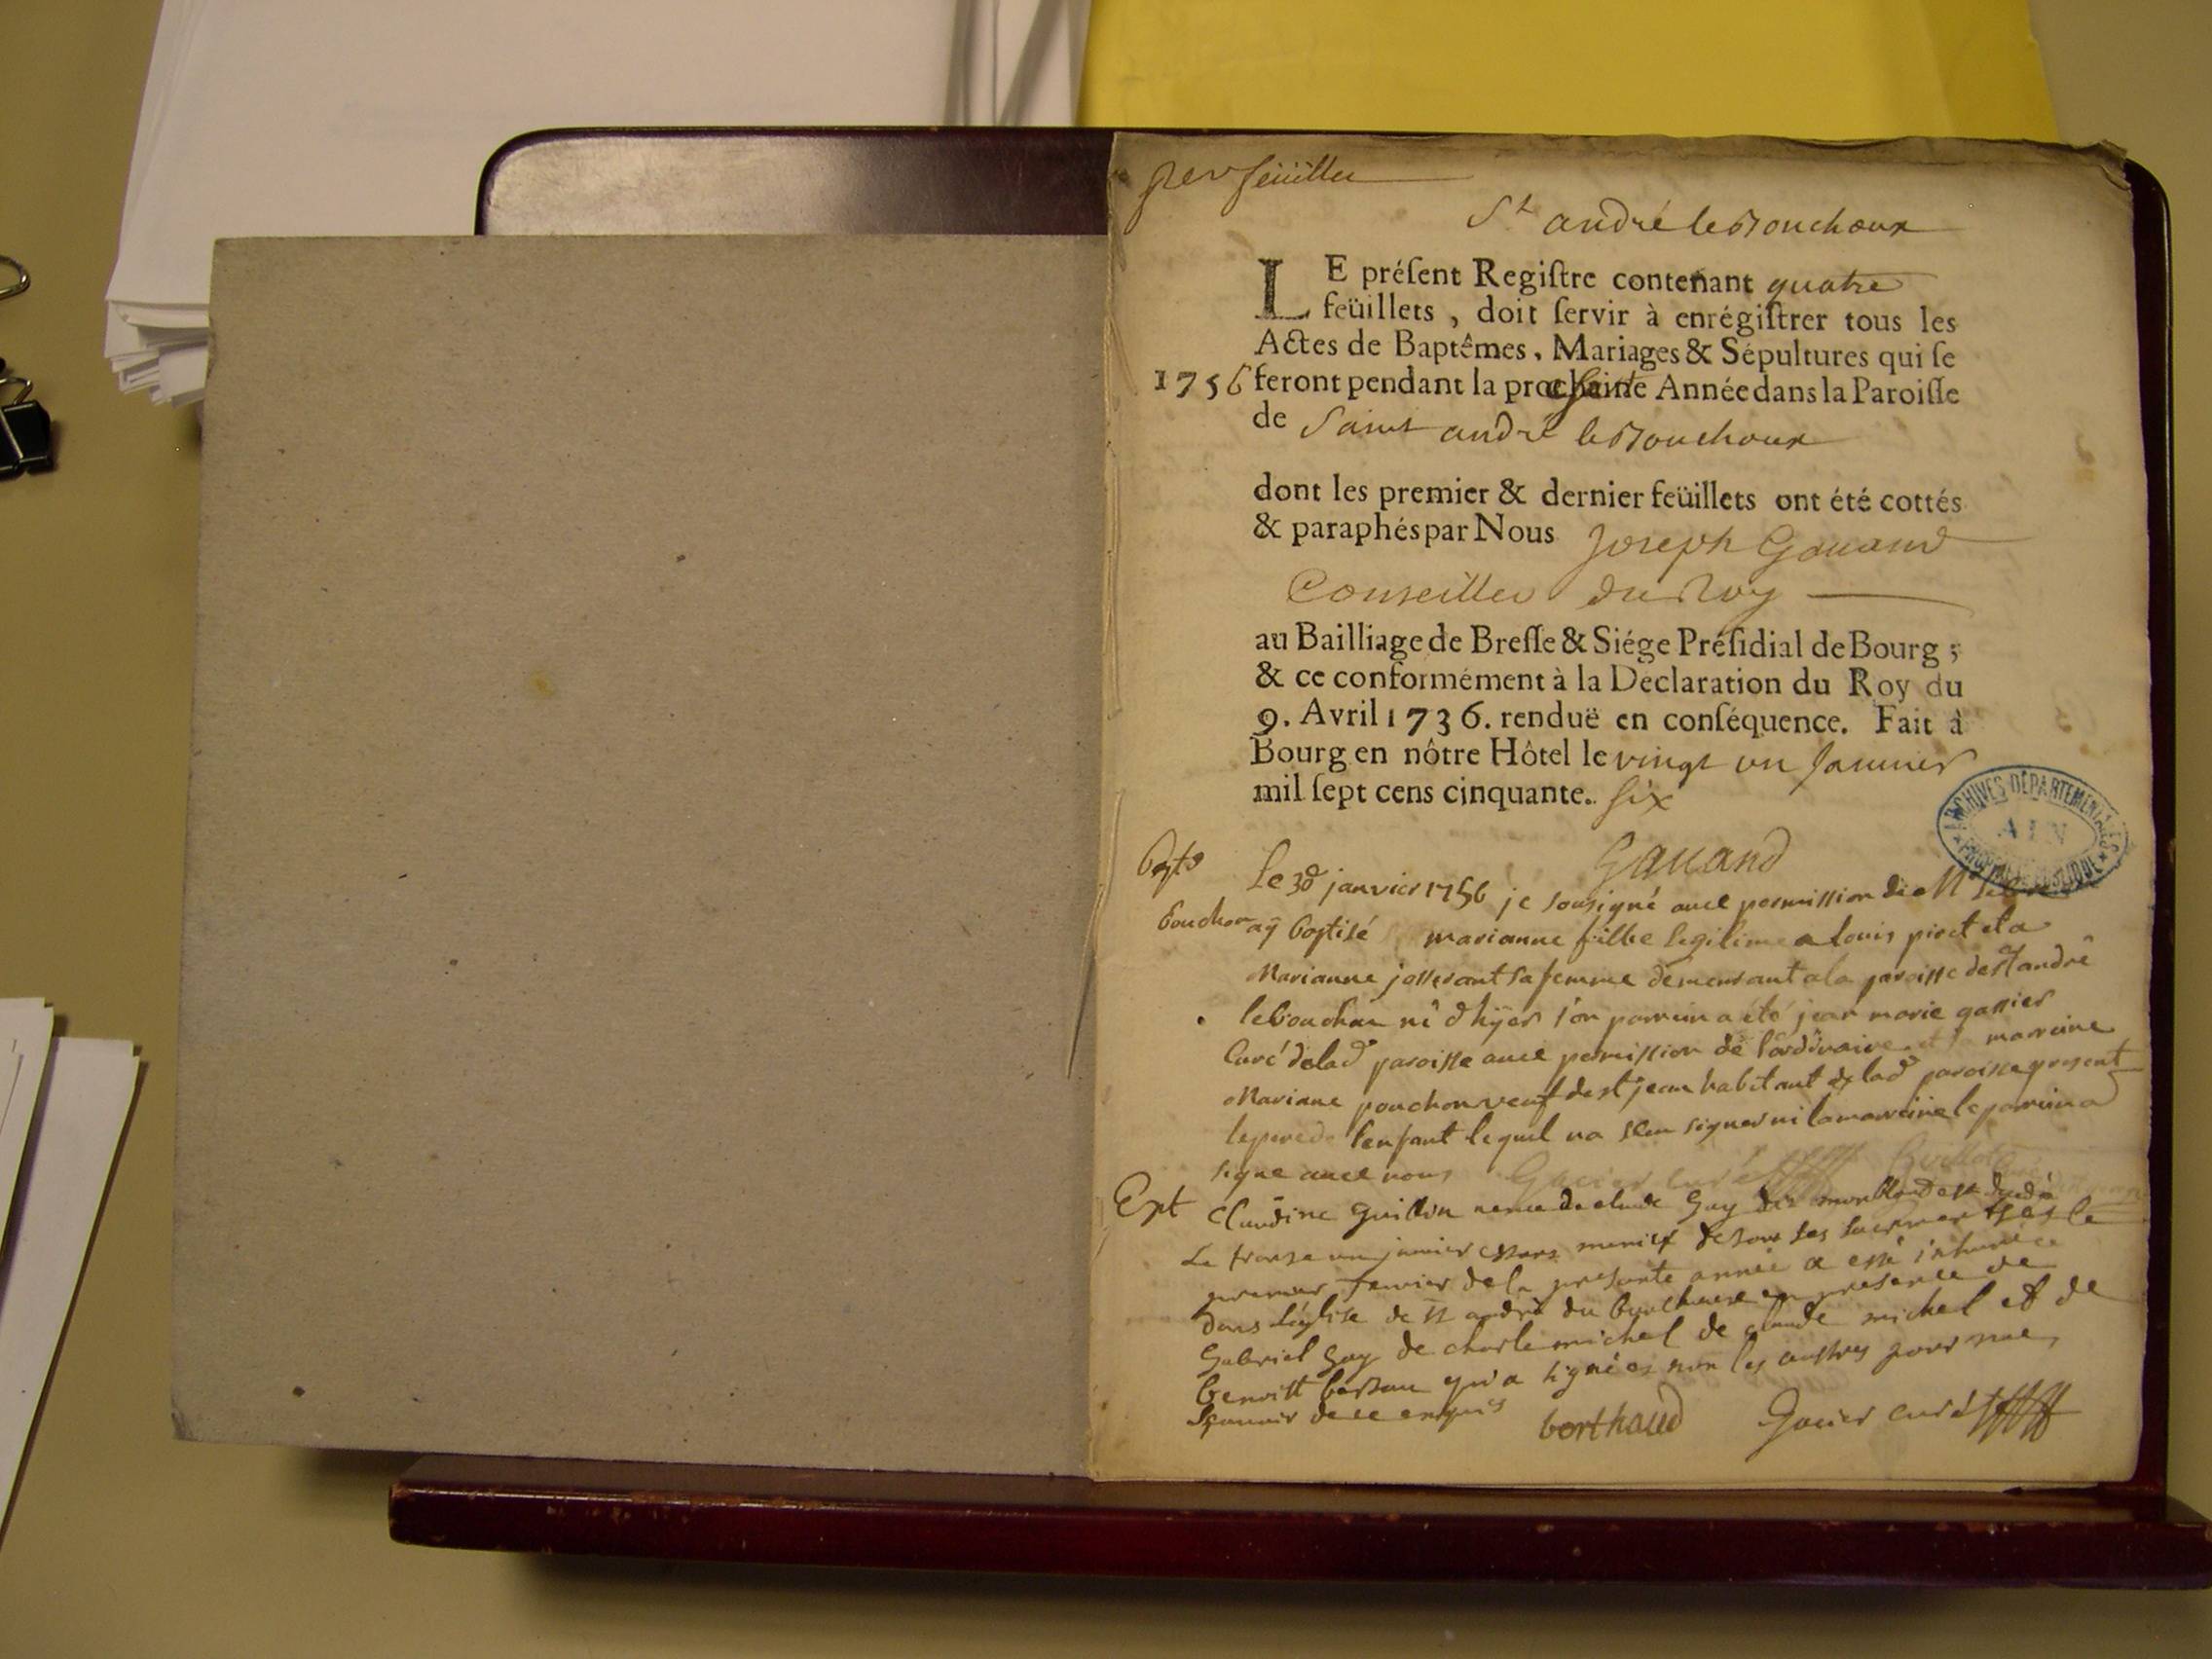 per feüillet
St andré le Bouchoux
LE préſent Regiſtre contenant quatre
feüillets, doit ſervir à enrégiſtrer tous les
Actes de Baptêmes, Mariages & Sépultures qui ſe
1756 feront pendant la prochaine Année dans la Paroiſſe
de Saint andré le Bouchoux
dont les premier & dernier feüillets ont été cottés
& paraphés par Nous Joseph Gauand
Conseiller du Roy
au Bailliage de Breſſe & Siége Préſidial de Bourg;
& ce conformément à la Déclaration du Roy du
9. Avril 1736. renduë en conſéquence. Fait à
Bourg en nôtre Hôtel le vingt un Januier
mil ſept cens cinquante. six
Gauand
ARCHIVES DÉPARTEMENTALES
AIN
PROPRIÉTÉ PUBLIQUE
Bapt
Le 30 janvier 1756 je sousigné auec permission de Mr
aÿ Baptisé marianne fille legitime a louis piret et a
Marianne josserant sa femme demeurant a la paroisse de st andré
le bouchou né d hÿer son parrain a été jean marie gacier
Curé de lad paroisse auec permission de l'ordinaire et la marraine
Mariane pouchon veuf de st jean habitant de lad paroisse present
le pere de l'enfant lequel na sceu signer ni la marraine le parrain a
signe auec nous Gacier curé
Ept
Claudine Guillon de claude Guy
Le trense un janvier munie de tous ses sacremens le
premier fevrier de la presente année a esté inhumée
dans l'église de st andré du bouchoux en presence de
Gabriel Guy de charle michel de claude michel et de
benoist qui a signé et non les austres pour ne
sçauoir de ce enquis
berthaud
Gacier curé